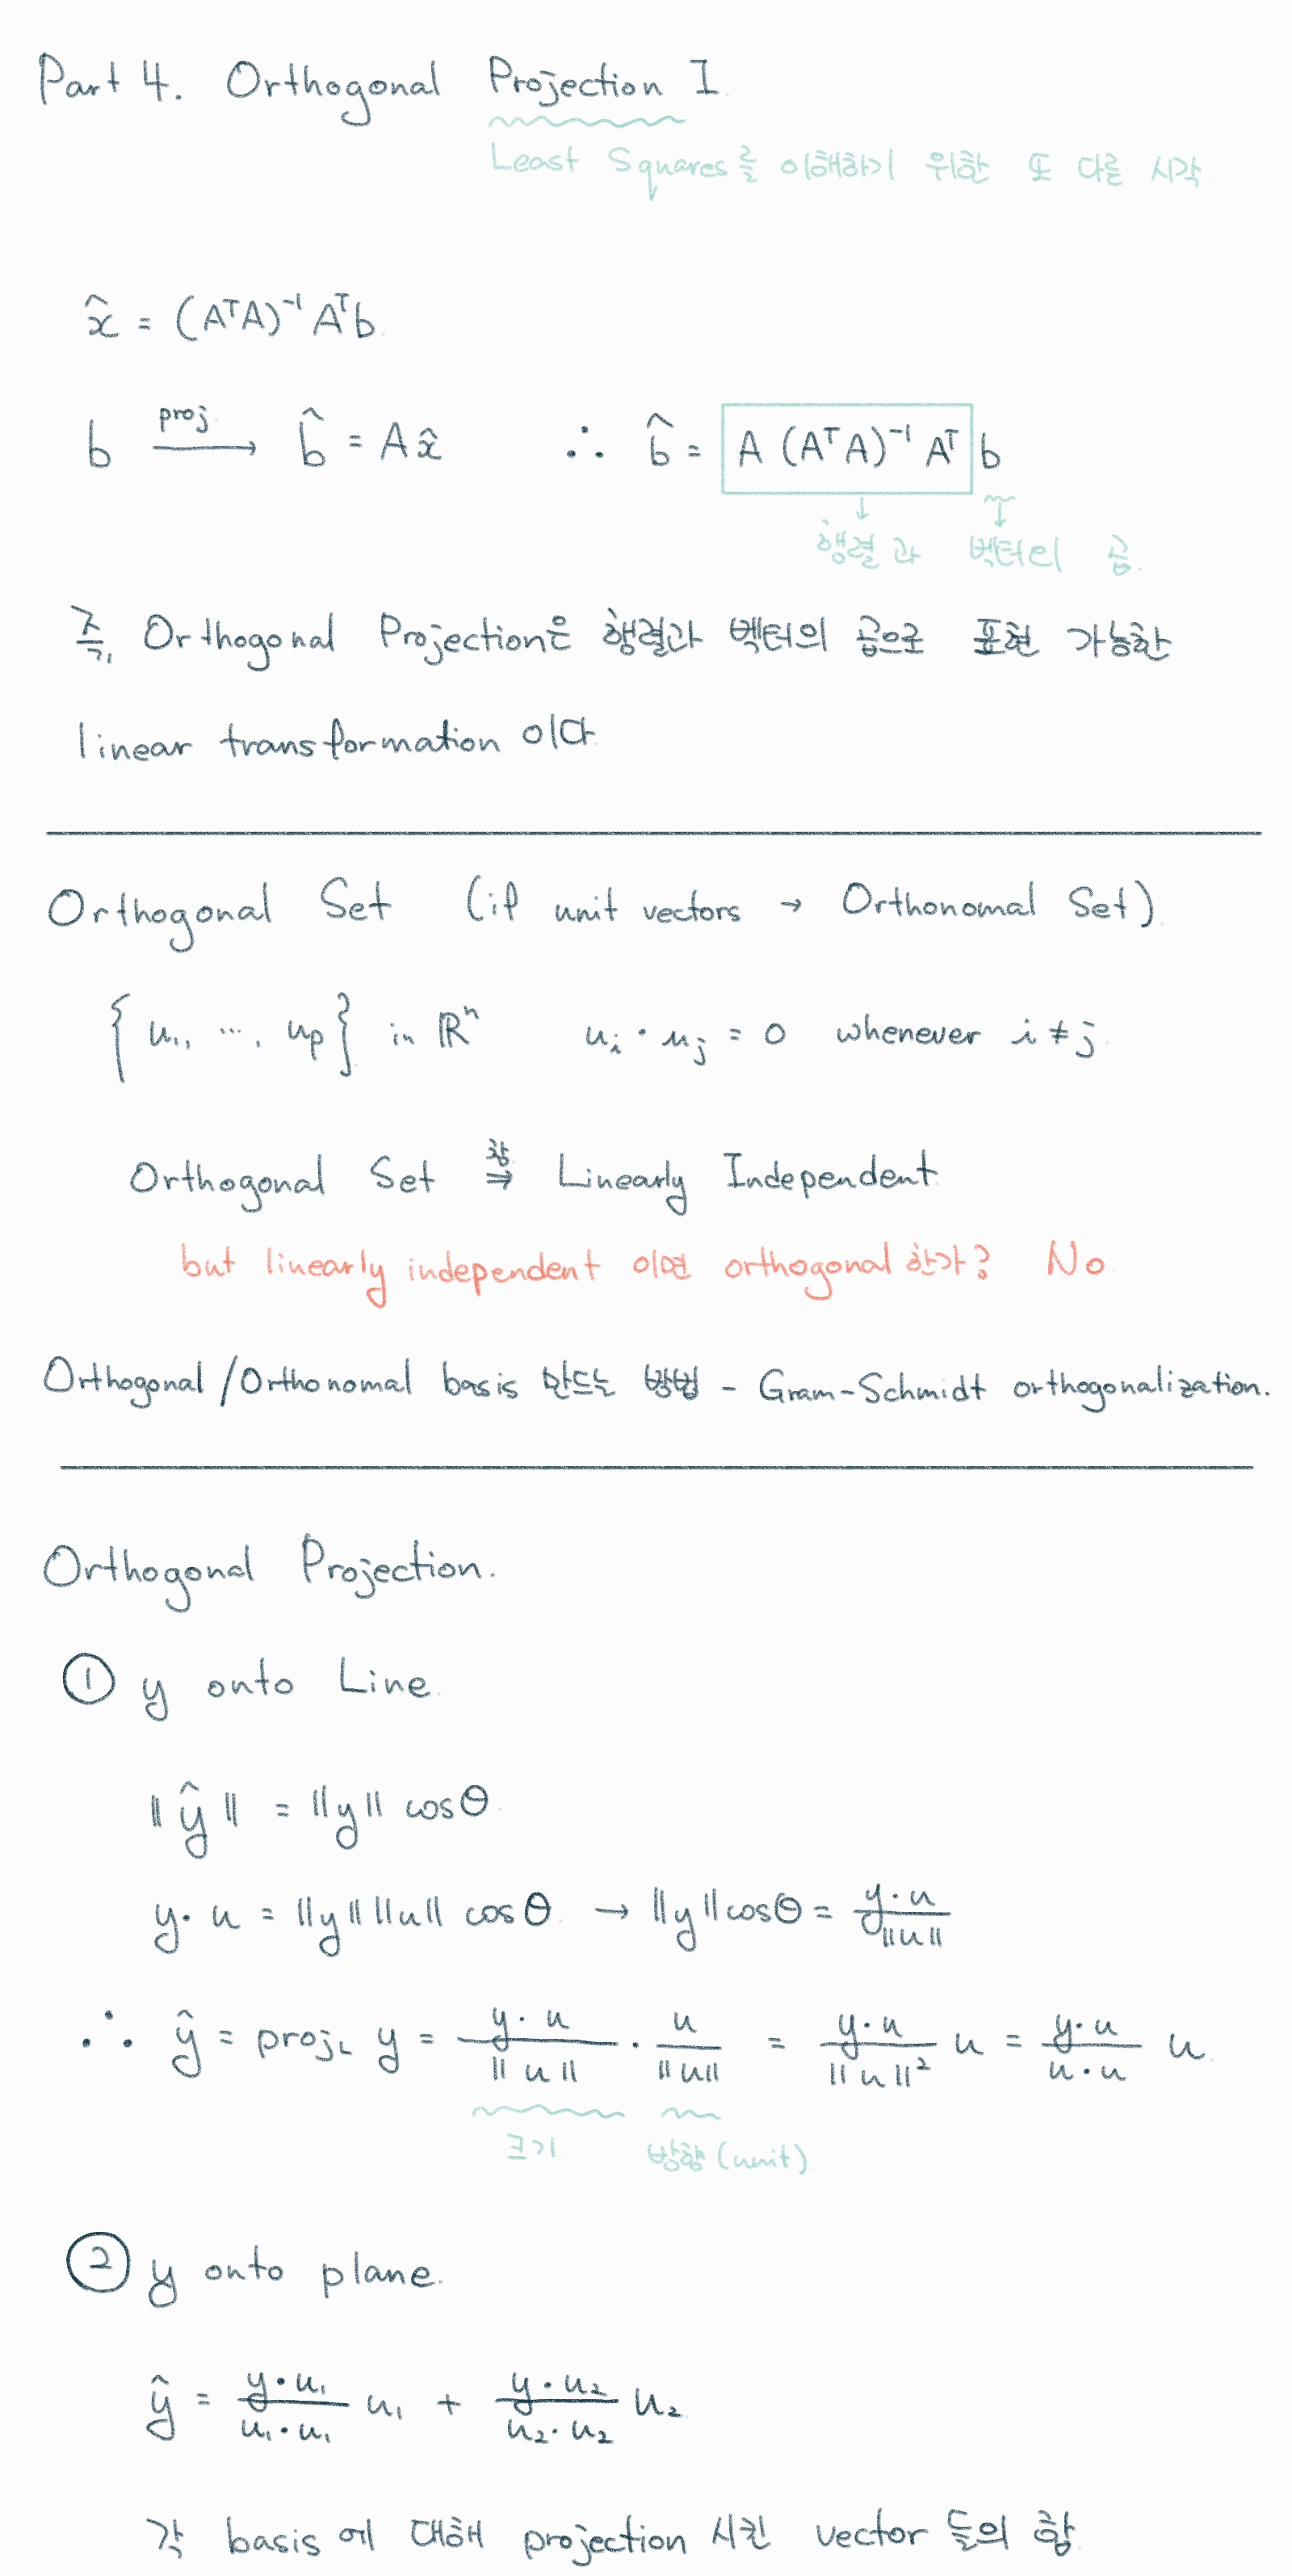 Part 4. Orthogonal Projection I.
Least Squares를 이해하기 위한 또 다른 시각.
x̂ = (AᵀA)⁻¹Aᵀb.
b —proj.→ b̂ = Ax̂ ∴ b̂ = A (AᵀA)⁻¹ Aᵀ b
↓ ↓
행렬과 벡터의 곱.
즉, Orthogonal Projection은 행렬과 벡터의 곱으로 표현 가능한
linear transformation 이다.
Orthogonal Set (if unit vectors → Orthonomal Set).
{u₁, ⋯, uₚ} in ℝⁿ uᵢ · uⱼ = 0 whenever i ≠ j.
Orthogonal Set ⇒(참) Linearly Independent.
but linearly independent 이면 orthogonal 한가? No.
Orthogonal/Orthonomal basis 만드는 방법 - Gram-Schmidt orthogonalization.
Orthogonal Projection.
① y onto Line.
‖ŷ‖ = ‖y‖ cosθ.
y · u = ‖y‖‖u‖ cosθ. → ‖y‖cosθ = y·u / ‖u‖
∴ ŷ = proj_L y = y·u / ‖u‖ · u / ‖u‖ = y·u / ‖u‖² u = y·u / u·u u.
크기. 방향(unit).
② y onto plane.
ŷ = y·u₁ / u₁·u₁ u₁ + y·u₂ / u₂·u₂ u₂.
각 basis에 대해 projection 시킨 vector 들의 합.